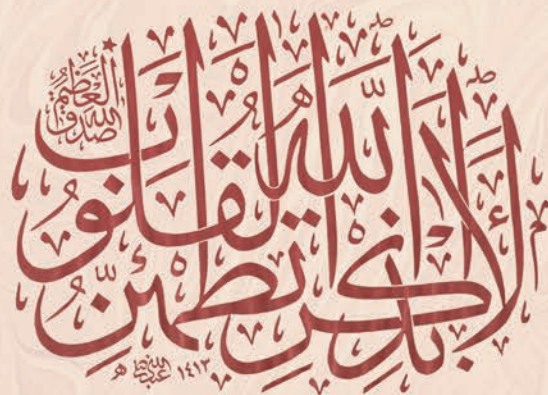 ألا بذكر الله تطمئن القلوب
صدق الله العظيم
١٤١٣ هـ